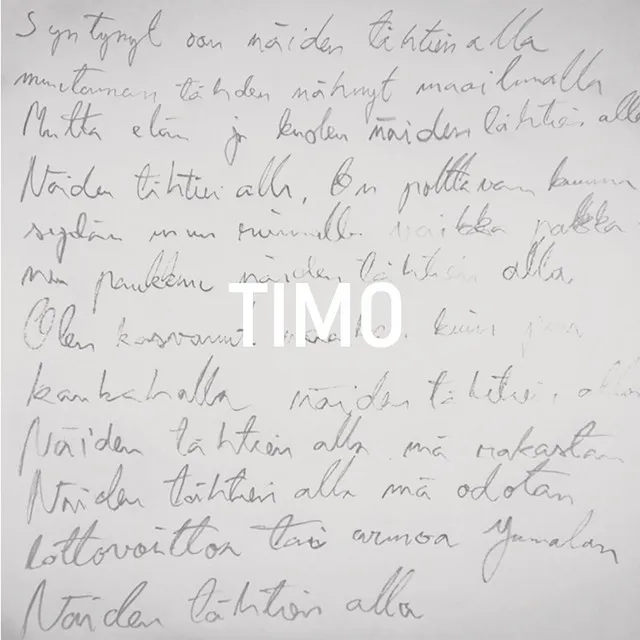 Syntynyt oon näiden tähtien alla
muutaman tähden nähnyt maailmalla
Mutta elän ja kuolen näiden tähtien alla
Näiden tähtien alla, On polttavan kuuma
sydän mun rinnalla vaikka pakka
nen paukkuu näiden tähtien alla.
TIMO
Olen kasvanut kuin
kankahalla näiden tähtien alla
Näiden tähtien alla mä rakastan
Näiden tähtien alla mä odotan
Lottovoittoa tai armoa Jumalan
Näiden tähtien alla